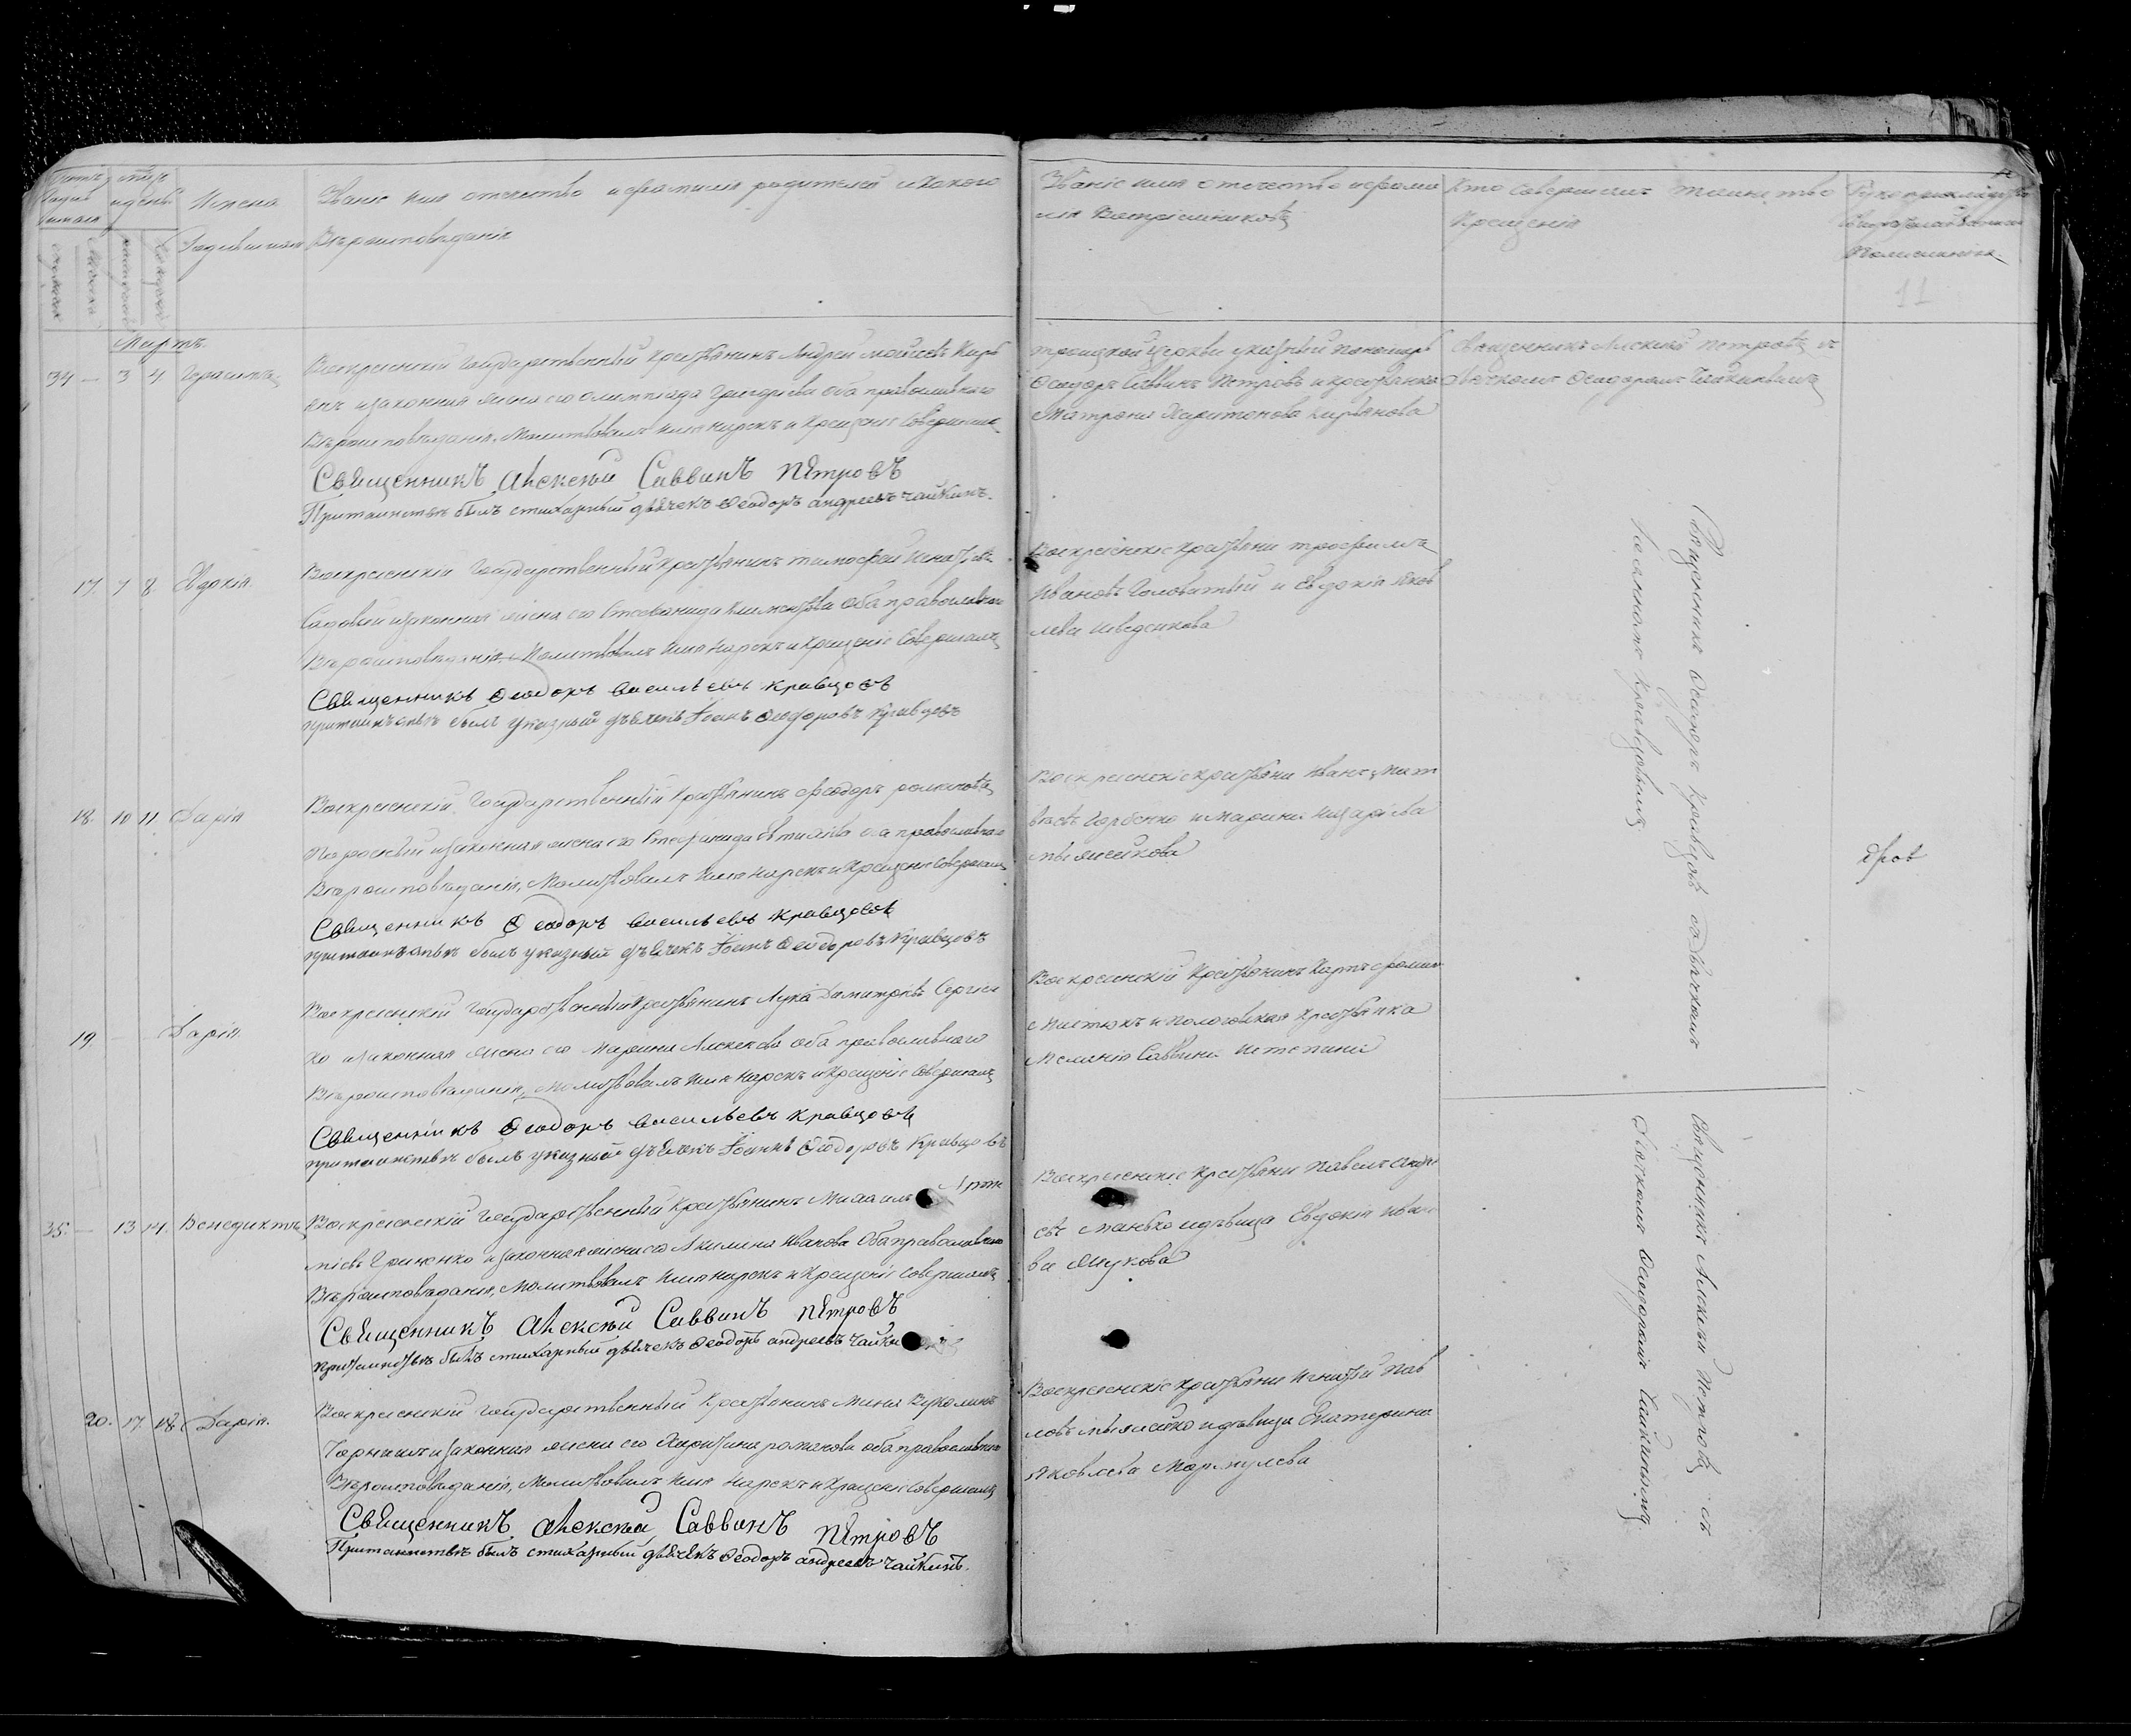 Имена
Родившихся
Званіе имя отечество и фамилія родителей и какого
Вѣроисповѣданія
Званіе имя отечество и фами
лія Воспріемниковъ
Кто совершалъ таинство
Крещенія
11
Мартъ.
34 — 3 4 Герасимъ
Воскресенскій Государственный крестьянинъ Андрей Моисеевъ
и законная жена его Олимпіада Григорьева оба православнаго
Вѣроисповѣданія, Молитвовалъ имя нарекъ и крещеніе совершилъ
Священникъ Алексѣй Саввинъ Петровъ
При таинствѣ былъ стихарный дьячекъ Ѳеодоръ Андреевъ Чайкинъ.
Троицкой церкви указный пономарь
Ѳеодоръ Саввинъ Петровъ и крестьянка
Матрона Харитонова Кирьянова
Священникъ Алексѣй Петровъ съ
дьячкомъ Ѳеодоромъ Чайкинымъ
17. 7 8. Евдокія
Воскресенскій Государственный крестьянинъ Тимофей Игнатьевъ
Садовый и законная жена его Стефанида Климентьева оба православнаго
Вѣроисповѣданія, Молитвовалъ имя нарекъ и крещеніе совершалъ
Священникъ Ѳеодоръ Васильевъ Кравцовъ
при таинствѣ былъ указный дьячекъ Іоанъ Ѳеодоровъ Кравцовъ
Воскресенскіе крестьяни Трофимъ
Ивановъ Головатый и Евдокія Яков
лева Шведенкова
Священникъ Ѳеодоръ Кравцовъ съ дьячкомъ
Іоанномъ Кравцовымъ
18. 10 11 Дарія
Воскресенскій Государственный крестьянинъ Феодоръ Романовъ
и законная жена его Стефанида оба православнаго
Вѣроисповѣданія, Молитвовалъ имя нарекъ и крещеніе совершалъ
Священникъ Ѳеодоръ Васильевъ Кравцовъ
при таинствѣ былъ указный дьячекъ Іоанъ Ѳеодоровъ Кравцовъ
Воскресенскіе крестьяни Иванъ Мат
вѣевъ Горбенко и Марина Назарьева
19. Дарія.
Воскресенскій Государственный крестьянинъ Лука Димитріевъ Сергіен
ко и законная жена его Марина Алексѣева оба православнаго
Вѣроисповѣданія, Молитвовалъ имя нарекъ и крещеніе совершалъ
Священникъ Ѳеодоръ Васильевъ Кравцовъ
при таинствѣ былъ указный дьячекъ Іоаннъ Ѳеодоровъ Кравцовъ
Воскресенскій крестьянинъ
и крестьянка
Меланія Саввина
35. — 13 14. Бенедиктъ
Воскресенскій Государственный крестьянинъ Михаилъ Арте
міевъ Гриненко и законная жена его Акилина Иванова оба православнаго
Вѣроисповѣданія, Молитвовалъ имя нарекъ и крещеніе совершалъ
Священникъ Алексѣй Саввинъ Петровъ
При таинствѣ былъ стихарный дьячекъ Ѳеодоръ Андреевъ Чайкинъ
Воскресенскіе крестьяни Павелъ Андре
евъ Манько и дѣвица Евдокія Ивано
ва Жукова
Священникъ Алексѣй Петровъ съ
Дьячкомъ Ѳеодоромъ Чайкинымъ
20. 17. 18. Дарія.
Воскресенскій Государственный крестьянинъ Мина
и законная жена его Харитина Романова оба православнаго
Вѣроисповѣданія, Молитвовалъ имя нарекъ и крещеніе совершалъ
Священникъ Алексѣй Саввинъ Петровъ
При таинствѣ былъ стихарный дьячекъ Ѳеодоръ Андреевъ Чайкинъ.
Воскресенскіе крестьяни Игнатій Пав
ловъ и дѣвица Екатерина
Яковлева